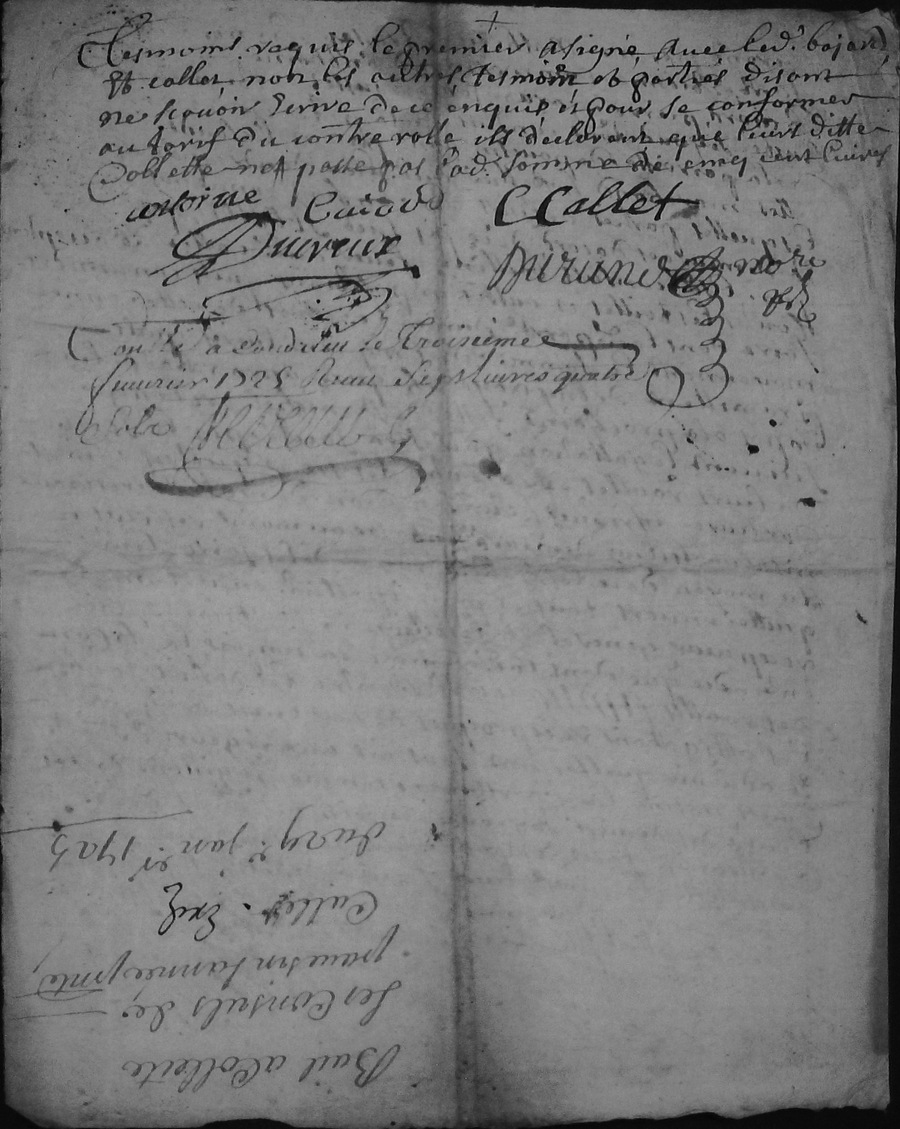 tesmoins requis le premier a signé avec led. bojard
et collet non les autres tesmoins et parties disant
ne scavoir ecrire de ce enquis et pour se conformer
au tarif du controlle ils declarent que leurs ditte
Collette ne passe pas lad. somme de cinq cent livres
antoine
CCollet
Duivreux
Durand nore
a Condrieu le Troisieme
feuvrier 1725 Receu sept livres quatre
Bail a Collecte
Les Consuls de
pour en lannée pnte
Collet
du 29e janer 1725